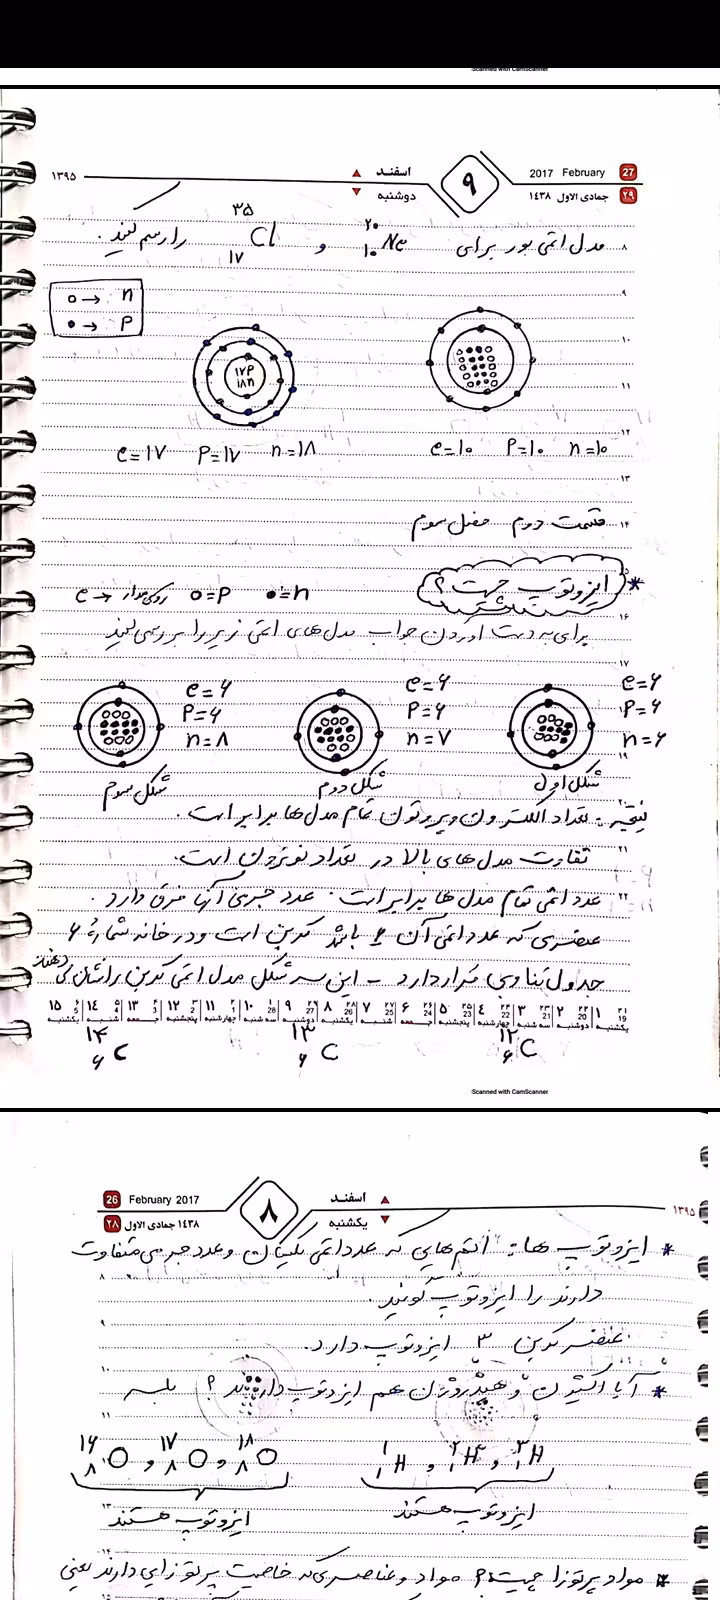 Scanned with CamScanner
۱۳۹۵ اسفند ۹ 2017 February 27
دوشنبه جمادی الاول ۱۴۳۸ ۲۹
۸ مدل اتمی بور برای ²⁰₁₀Ne و ³⁵₁₇Cl را رسم کنید.
۹
○ → n
● → p
۱۰
۱۷p
۱۸n
۱۱
۱۲
e=۱۰ P=۱۰ n=۱۰
e=۱۷ P=۱۷ n=۱۸
۱۳
۱۴ قسمت دوم فصل سوم
* ایزوتوپ چیست؟
●=n ○=p روی مدار → e
۱۶
برای به دست اوردن جواب مدل های اتمی زیر را بررسی کنید
۱۷
e=۶ P=۶ n=۶
e=۶ P=۶ n=۷
e=۶ P=۶ n=۸
۱۹
شکل اول شکل دوم شکل سوم
نتیجه: تعداد الکترون و پروتون تمام مدل ها برابر است.
۲۱
تفاوت مدل های بالا در تعداد نوترون است.
۲۲ عدد اتمی تمام مدل ها برابر است. عدد جرمی آنها فرق دارد.
عنصری که عدد اتمی آن ۶ باشد کربن است و در خانه شمارهٔ ۶
جدول تناوبی قرار دارد - این سه شکل مدل اتمی کربن را نشان می دهند
۱ ۲ ۳ ۴ ۵ ۶ ۷ ۸ ۹ ۱۰ ۱۱ ۱۲ ۱۳ ۱۴ ۱۵
یکشنبه دوشنبه سه شنبه چهارشنبه پنجشنبه جمعه شنبه یکشنبه دوشنبه سه شنبه چهارشنبه پنجشنبه جمعه شنبه یکشنبه
¹²₆C ¹³₆C ¹⁴₆C
Scanned with CamScanner
26 February 2017 ۸ اسفند ۱۳۹۵
۲۸ جمادی الاول ۱۴۳۸ یکشنبه
* ایزوتوپ ها: اتم هایی که عدد اتمی یکسان و عدد جرمی متفاوت
۸
دارند را ایزوتوپ گویند.
۹
عنصر کربن ۳ ایزوتوپ دارد.
۱۰
* آیا اکسیژن و هیدروژن هم ایزوتوپ دارند؟ بله
۱۱
¹₁H و ²₁H و ³₁H
¹⁶₈O و ¹⁷₈O و ¹⁸₈O
ایزوتوپ هستند
۱۳ ایزوتوپ هستند
۱۴
* مواد پرتوزا چیست؟ مواد و عناصری که خاصیت پرتوزایی دارند یعنی
۱۵